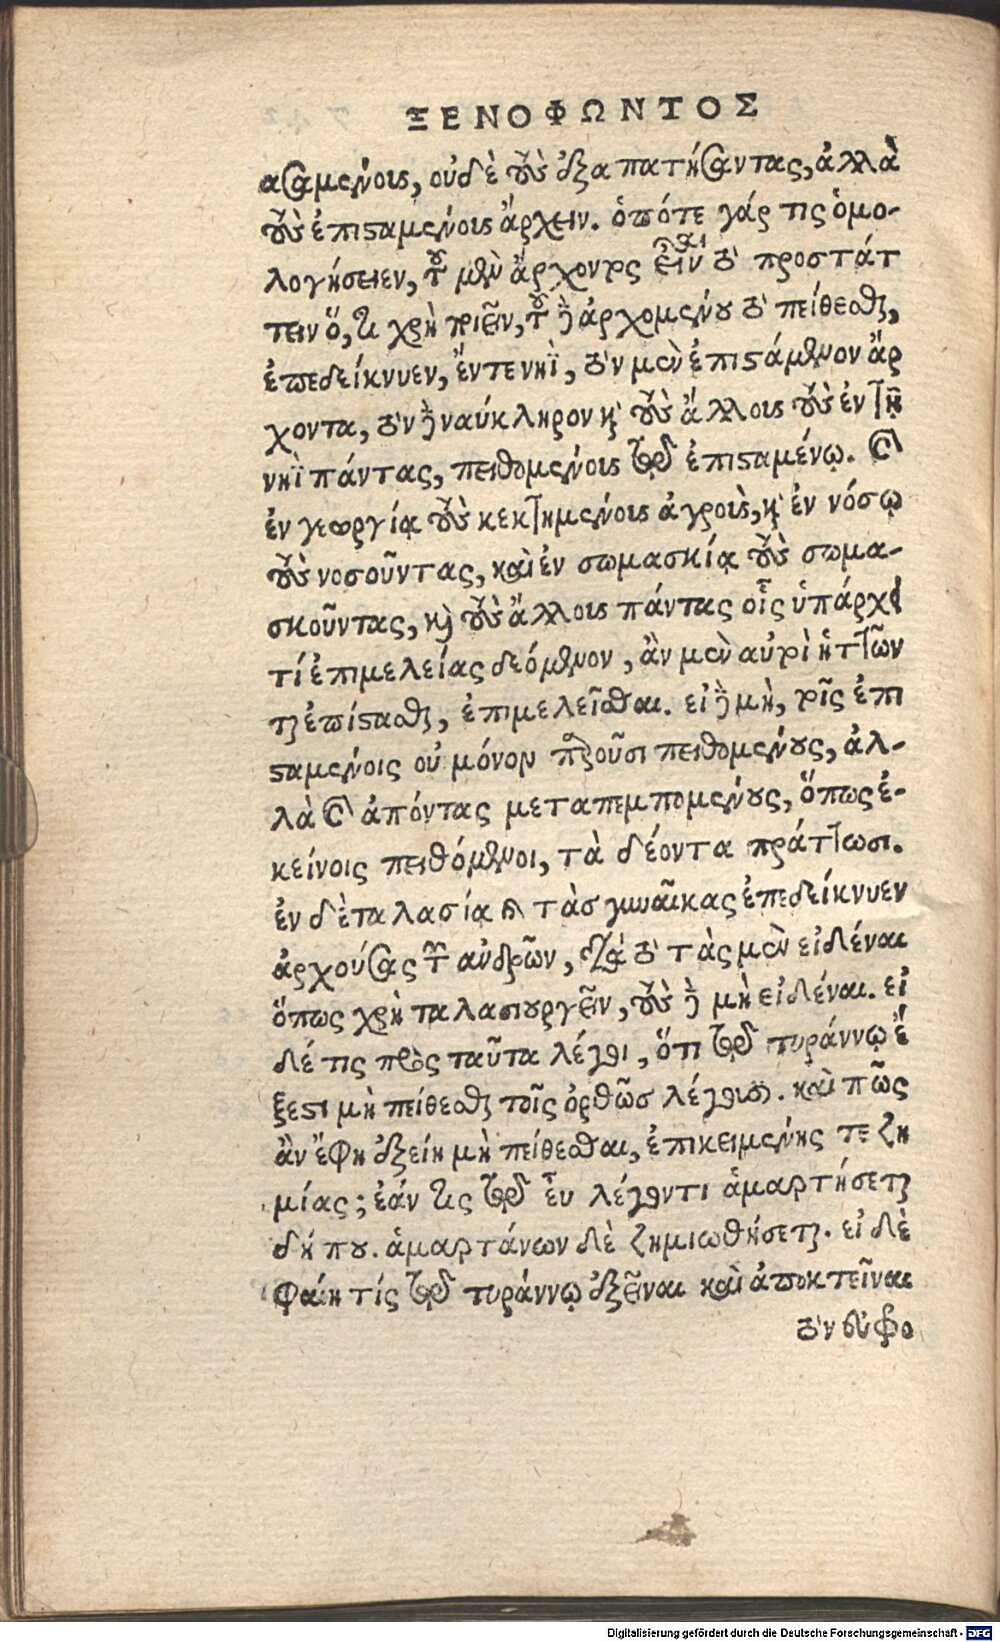 ΞΕΝΟΦΩΝΤΟΣ
ασαμένους, οὐδὲ τοὺς ἐξαπατήσαντας, ἀλλὰ
τοὺς ἐπισταμένους ἄρχειν. ὁπότε γάρ τις ὁμο-
λογήσειεν, τοῦ μὲν ἄρχοντος εἶναι τὸ προστάτ
τειν ὅ, τι χρὴ ποιεῖν, τοῦ δὲ ἀρχομένου τὸ πείθεσθαι,
ἐπεδείκνυεν, ἔν τε νηῒ, τὸν μὲν ἐπιστάμενον ἄρ
χοντα, τὸν δὲ ναύκληρον καὶ τοὺς ἄλλους τοὺς ἐν τῇ
νηῒ πάντας, πειθομένους τῷ ἐπισταμένῳ. καὶ
ἐν γεωργίᾳ τοὺς κεκτημένους ἀγροὺς, καὶ ἐν νόσῳ
τοὺς νοσοῦντας, καὶ ἐν σωμασκίᾳ τοὺς σωμα-
σκοῦντας, καὶ τοὺς ἄλλους πάντας οἷς ὑπάρχει
τί ἐπιμελείας δεόμενον, ἂν μὲν αὐτοὶ ἡττῶν
ται ἐπίστασθαι, ἐπιμελεῖσθαι. εἰ δὲ μὴ, τοῖς ἐπι
σταμένοις οὐ μόνον παροῦσι πειθομένους, ἀλ-
λὰ καὶ ἀπόντας μεταπεμπομένους, ὅπως ἐ-
κείνοις πειθόμενοι, τὰ δέοντα πράττωσι.
ἐν δὲ ταλασίᾳ καὶ τὰσ γυναῖκας ἐπεδείκνυεν
ἀρχούσας τῶν ἀνδρῶν, διὰ τὸ τὰς μὲν εἰδέναι
ὅπως χρὴ ταλασιουργεῖν, τοὺς δὲ μὴ εἰδέναι. εἰ
δέ τις πρὸς ταῦτα λέγοι, ὅτι τῷ τυράννῳ ἔ
ξεστι μὴ πείθεσθαι τοῖς ὀρθῶσ λέγουσι. καὶ πῶς
ἂν ἔφη ἐξείη μὴ πείθεσθαι, ἐπικειμένης τε ζη
μίας; ἐάν τις τῷ εὖ λέγοντι ἁμαρτήσεται
δή που. ἁμαρτάνων δὲ ζημιωθήσεται. εἰ δὲ
φαίη τίς τῷ τυράννῳ ἐξεῖναι καὶ ἀποκτεῖναι
τὸν εὐφρο
Digitalisierung gefördert durch die Deutsche Forschungsgemeinschaft - DFG